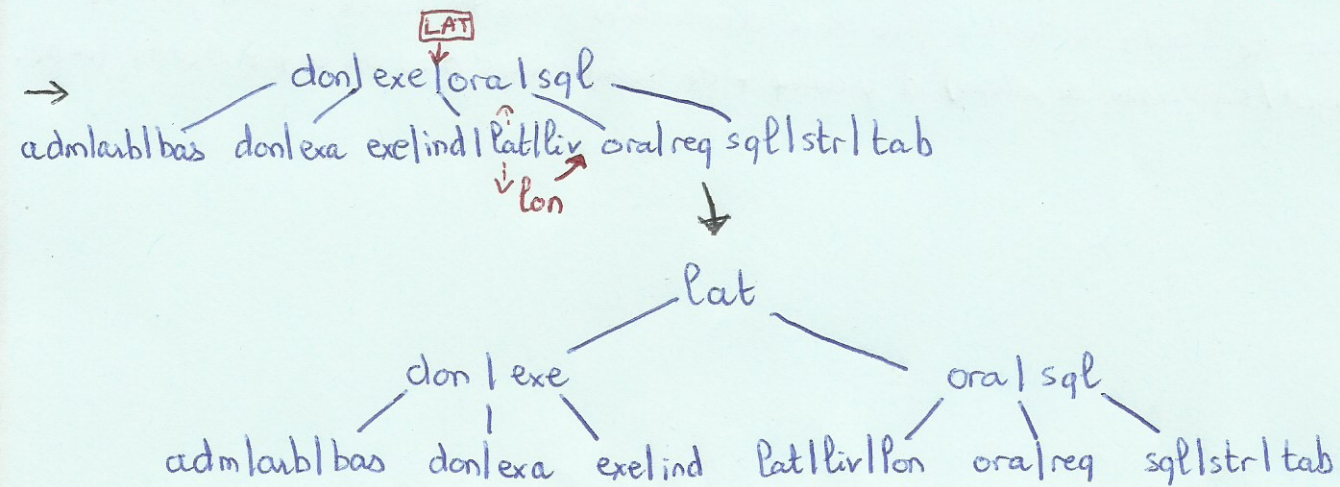 LAT
→ don|exe|ora|sql
adm|arb|bas don|exa exe|ind|lat|liv ora|req sql|str|tab
lon
lat
don|exe ora|sql
adm|arb|bas don|exa exe|ind lat|liv|lon ora|req sql|str|tab